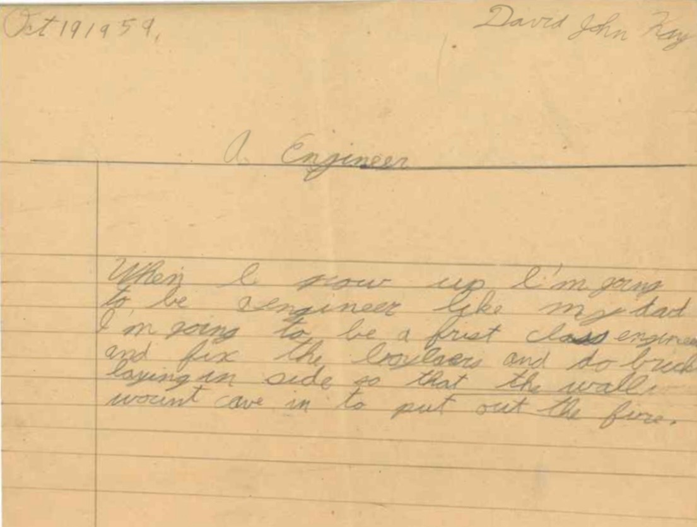 Oct 19 1959.
David John Kay
A Engineer
When I grow up I'm going
to be a engineer like my dad
I'm going to be a frist class engineer
and fix the boylers and do brick
laying in side so that the wall
wount cave in to put out the fire.